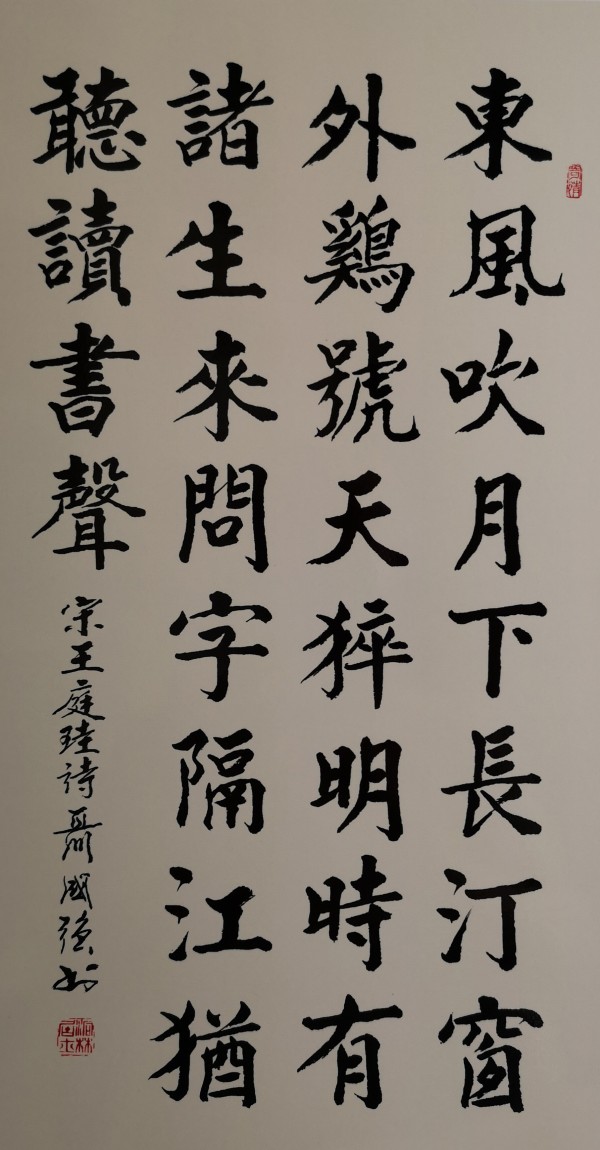 東風吹月下長汀窗
外鷄號天猝明時有
諸生來問字隔江猶
聽讀書聲
宋王庭珪詩聶國強书